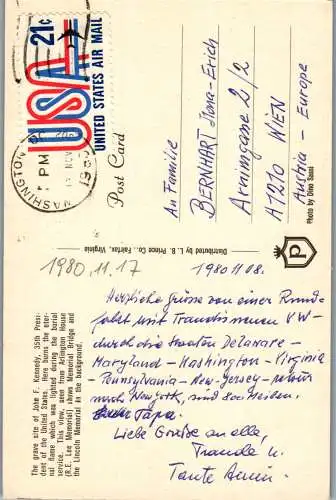 The grave site of John F. Kennedy, 35th Presi-
dent of the United States. Here burns the eter-
nal flame which was lighted during the burial
service. This view, seen from Arlington House
(R.E. Lee Memorial) shows Memorial Bridge and
the Lincoln Memorial in the background.
1980.11.17
1980 11 08.
Herzliche Grüsse von einer Rund
fahrt mit Traudis neuen VW
durch die Staaten Delaware -
Maryland - Washington - Virginia
- Pennsylvania - New-Jersey - retour
nach New York, sind 800 Meilen.
Papa.
Liebe Grüße an alle,
Traude u.
Tante Anni.
Distributed by L. B. Prince Co., Fairfax, Virginia
P
Post Card
USA
21c
UNITED STATES AIR MAIL
WASHINGTON
PM
NOV
An Familie
BERNHART Ilona-Erich
Arnimgasse 2/2
A1210 WIEN
Austria - Europe
Photo by Dino Sassi